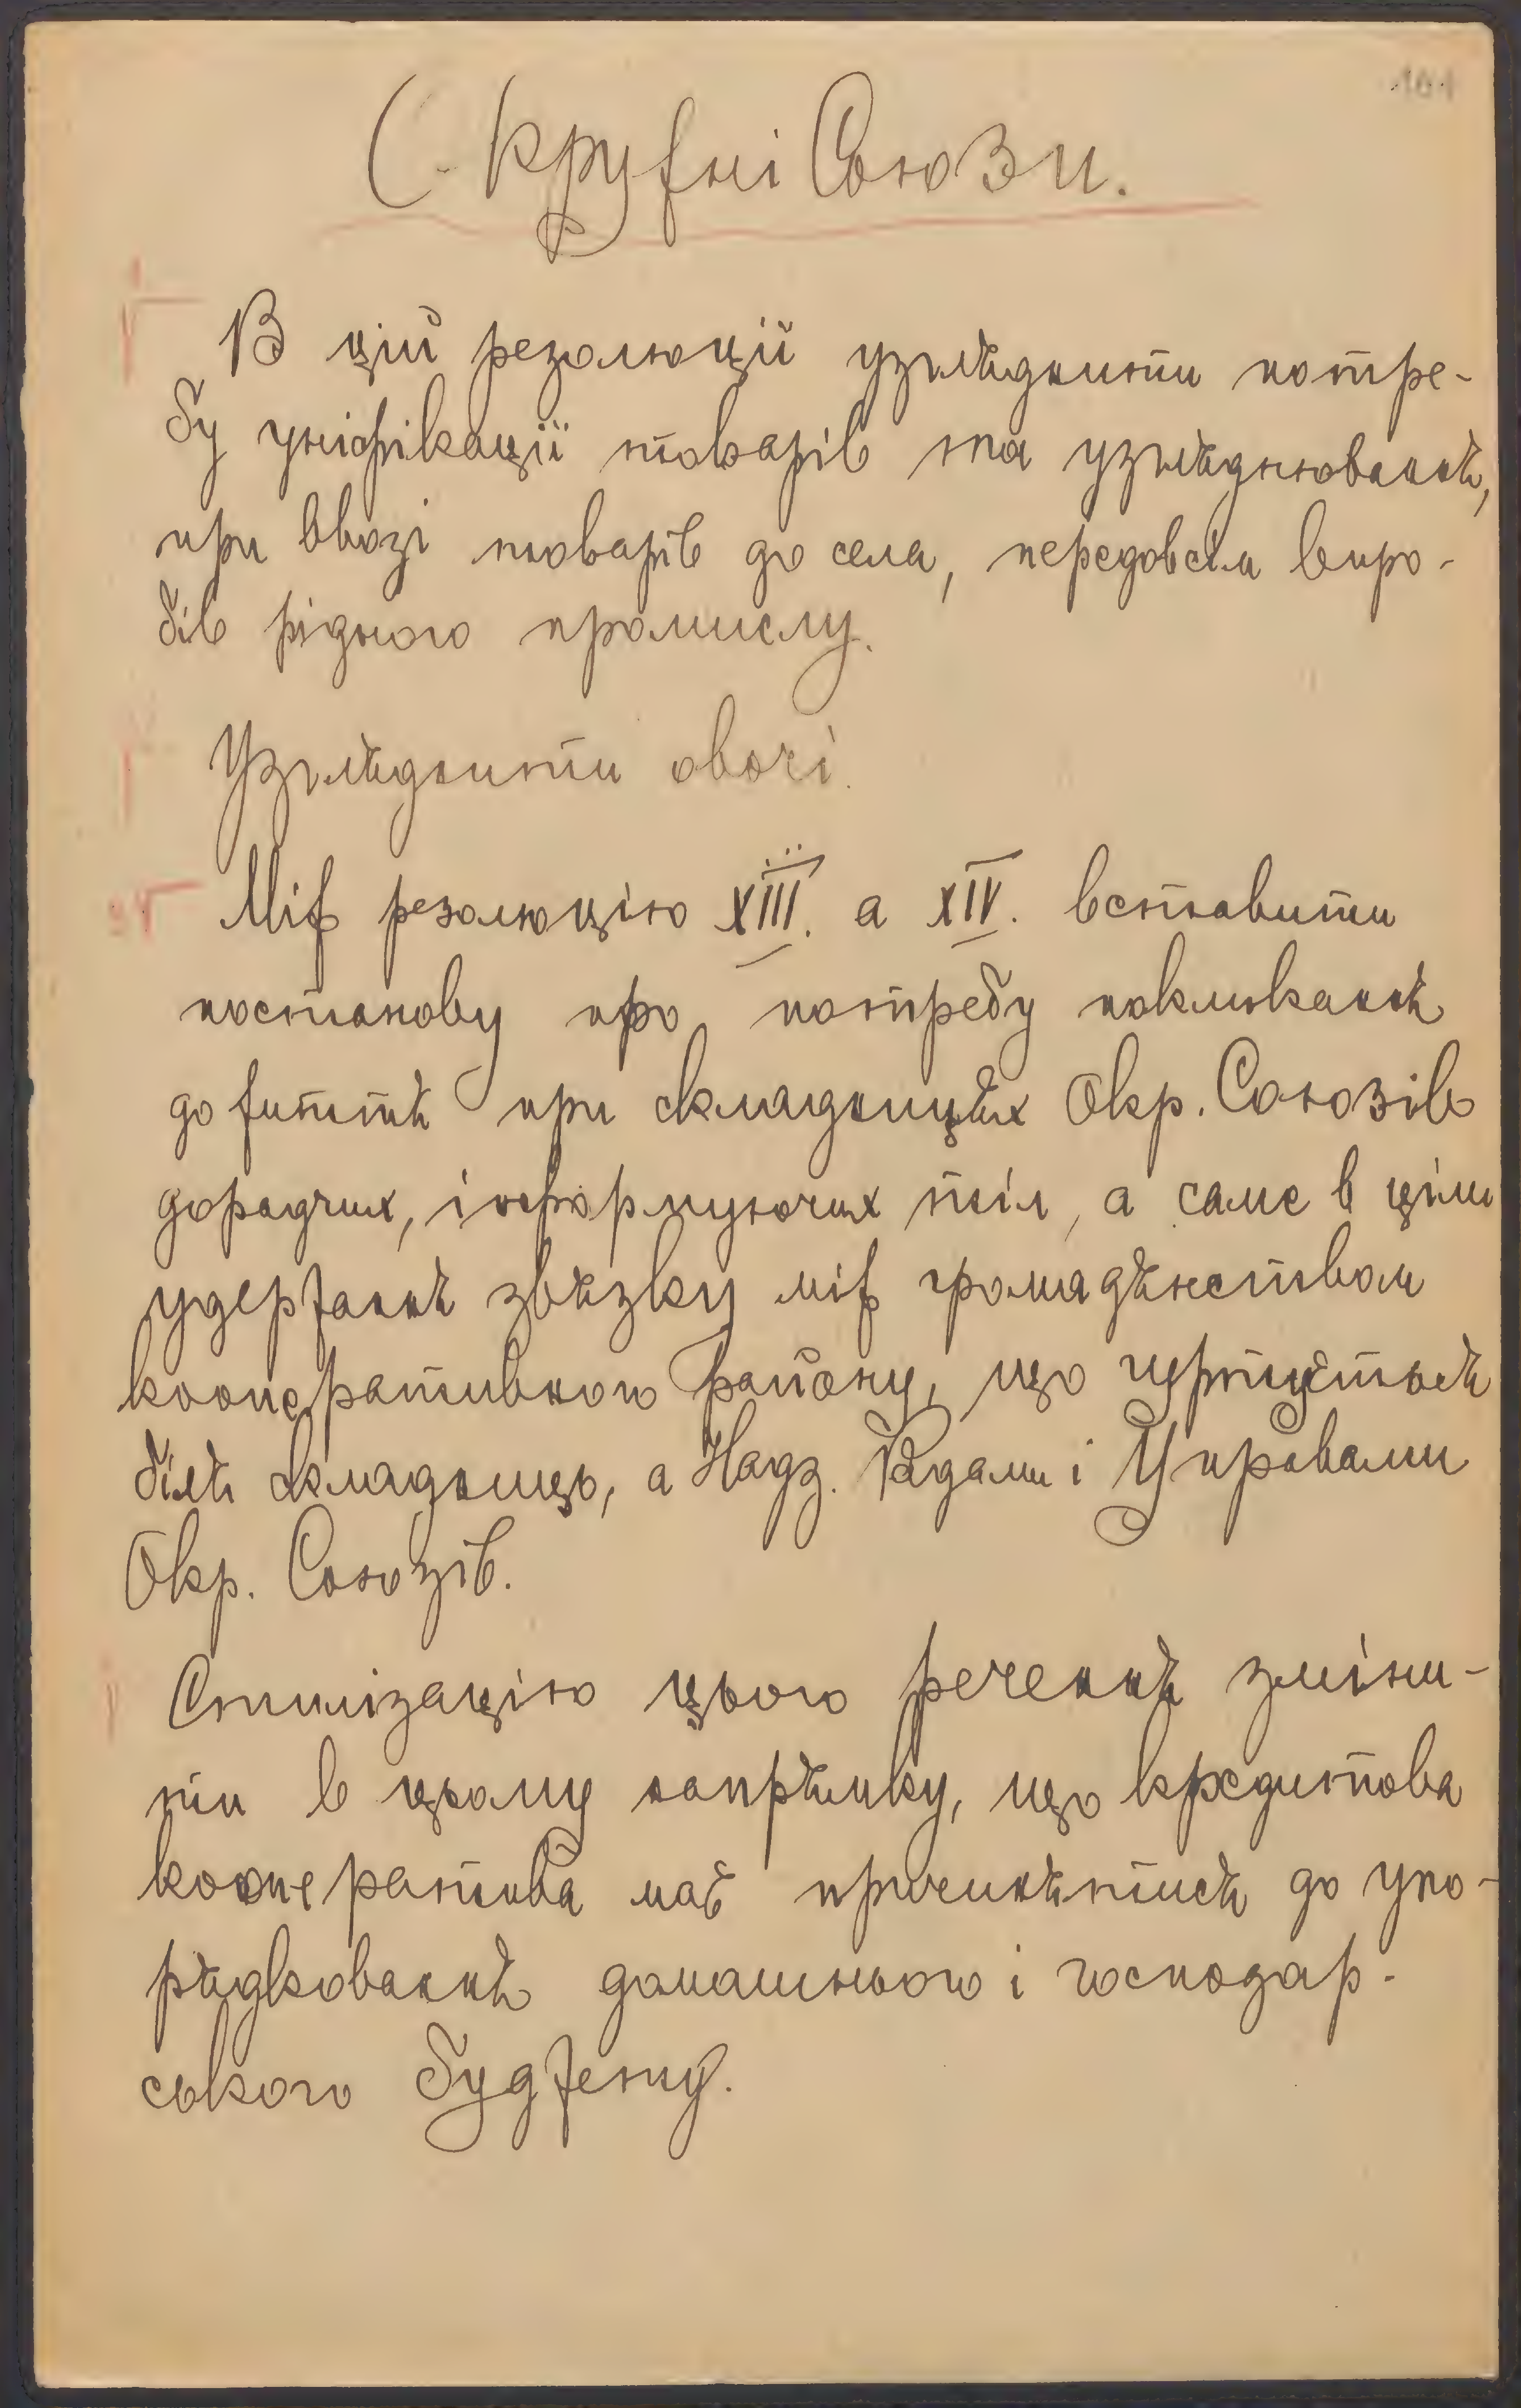 101
Окружні Союзи.
В цій резолюції узгляднити потре-
бу уніфікації товарів та узгляднювання,
при ввозі товарів до села, передовсім виро-
бів рідного промислу.
Узгляднити овочі.
Між резолюцію XIII. а XIV. вставити
постанову про потребу покликання
до життя при складницях Окр. Союзів
дорадчих, інформуючих тіл, а саме в ціли
удержання звязку між громадянством
кооперативного району, що гуртується
біля складниць, а Надз. Радами і Управами
Окр. Союзів.
Стилізацію цього речення зміни-
ти в цьому напрямку, що кредитова
кооператива має причинятися до упо-
рядковання домашнього і господар-
ського буджету.